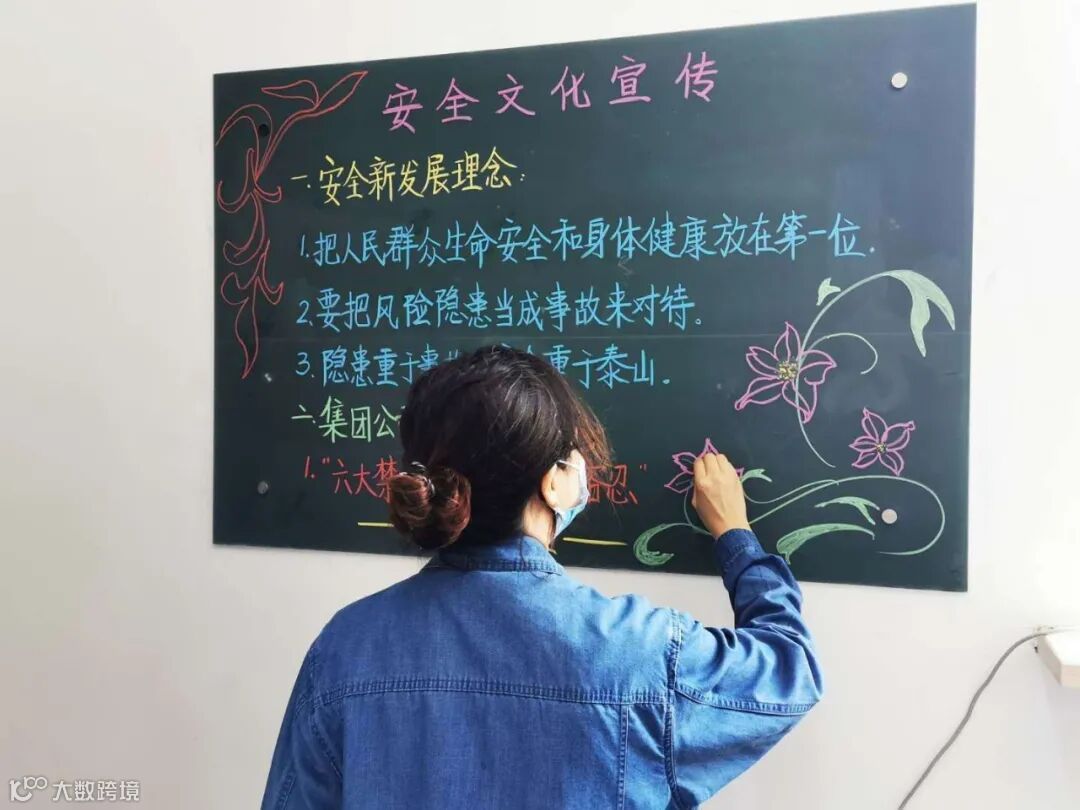 安全文化宣传
一.安全新发展理念:
1.把人民群众生命安全和身体健康放在第一位.
2.要把风险隐患当成事故来对待。
3.隐患重于事 重于泰山.
二.集团公
1."六大禁 忍"
大数跨境